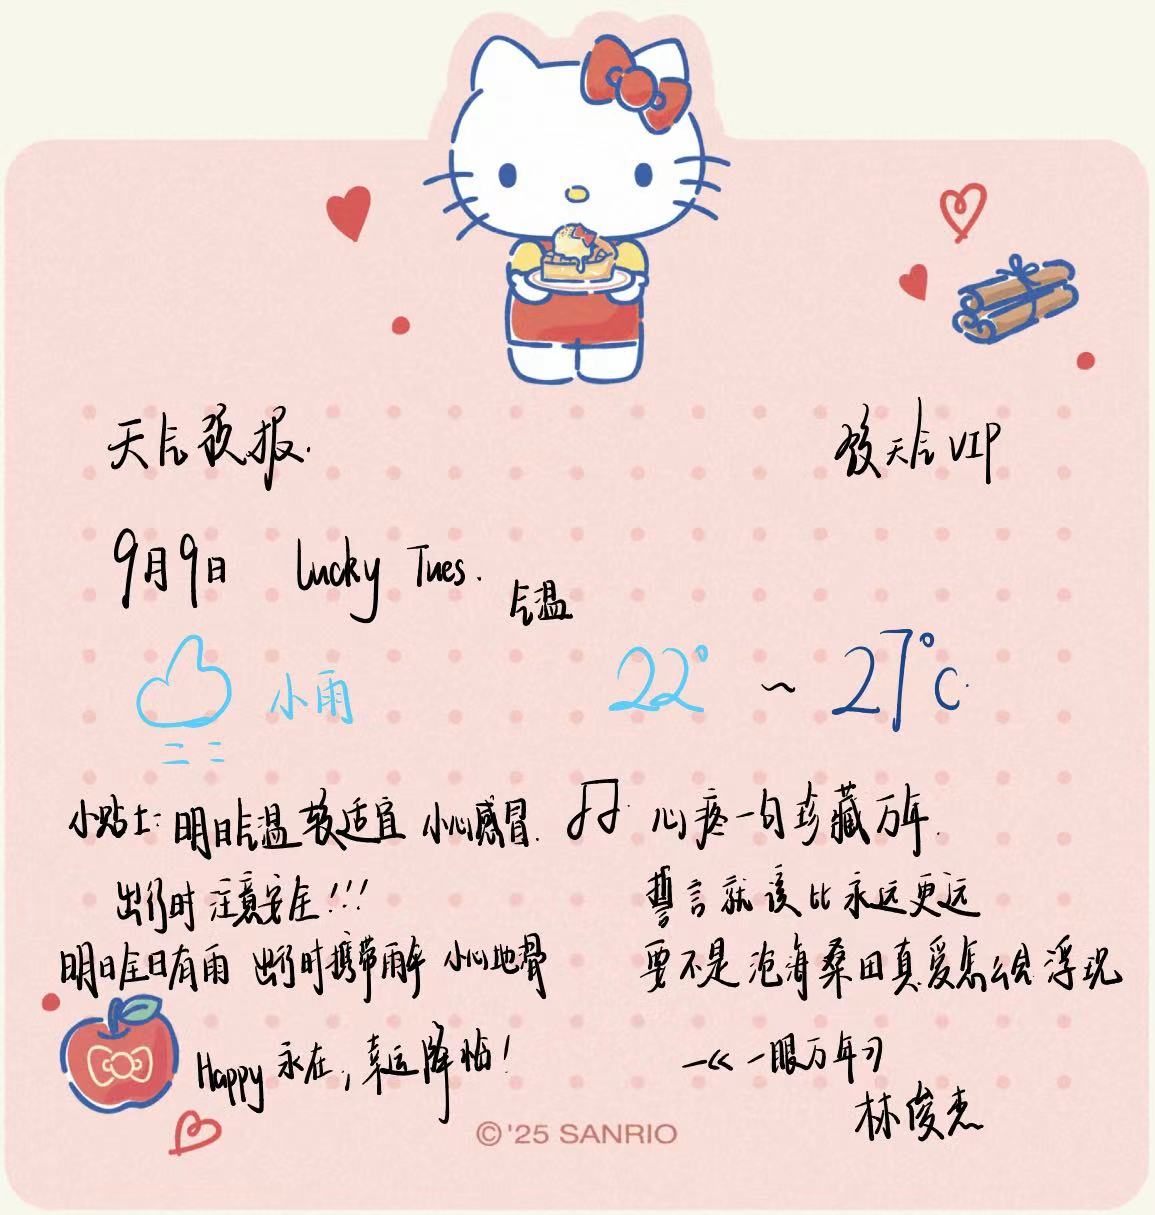 天气预报.
天气VIP
9月9日 Lucky Tues.
气温
小雨 22° ~ 27°C
小贴士: 明日气温较适宜 小心感冒.
出行时 注意安全!!!
明日全日有雨 出行时携带雨伞 小心地滑
Happy 永在, 幸运降临!
心疼一句珍藏万年.
誓言就该比永远更远
要不是沧海桑田真爱怎么会浮现
—《一眼万年》
林俊杰
©'25 SANRIO